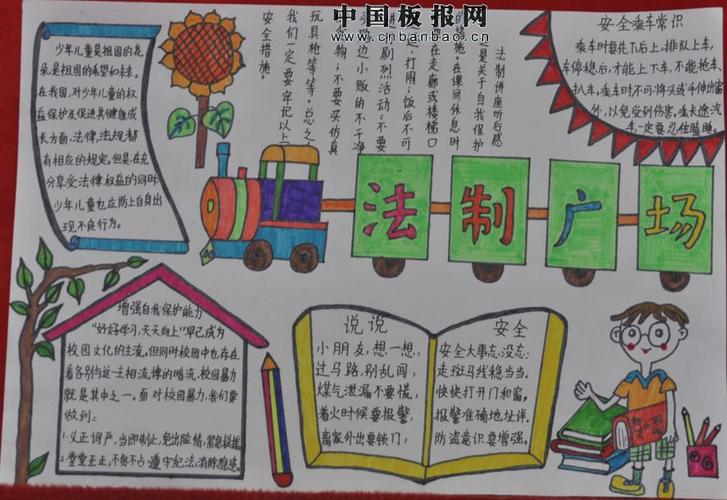 中国板报网
www.cnbanbao.cn
少年儿童是祖国的花
朵是祖国的希望和未来。
在我国,对少年儿童的权
益保护及促进其健康成
长方面,法律,法规都
有相应的规定。但是在充
分享受法律权益的同时
少年儿童也应防上自身出
现不良行为。
法制讲座听后感
是关于自我保护
的措施。在课间休息时
在走廊或楼梯口
打闹;饭后不可
进剧烈活动;不要
边小贩的不干净
物;不要买仿真
玩具枪等等。总之
我们一定要牢记以上
安全措施。
安全乘车常识
乘车时要先下后上,排队上车,
车停稳后,才能上下车,不能抢车、
扒车。乘车时不可将头或手伸出窗
外,以免受到伤害。乘长途汽
车一定要忍住瞌睡。
法制广场
增强自我保护能力
“好好学习,天天向上”早已成为
校园文化的主流。但同时校园中也存在
着各别与这一主相流,悖的暗流。校园暴力
就是其中之一。面对校园暴力,我们要
做到:
1.义正词严,当即制止,免出险情,紧急援
2.堂堂正正,不贪不占,遵守纪法,消除隐患。
说说
小朋友,想一想,
过马路,别乱闯,
煤气泄漏不要慌,
着火时候要报警,
离家外出要锁门,
安全
安全大事志:没忘:
走斑马线稳当当。
快快打开门和窗。
报警准确地址详。
防盗意识要增强。